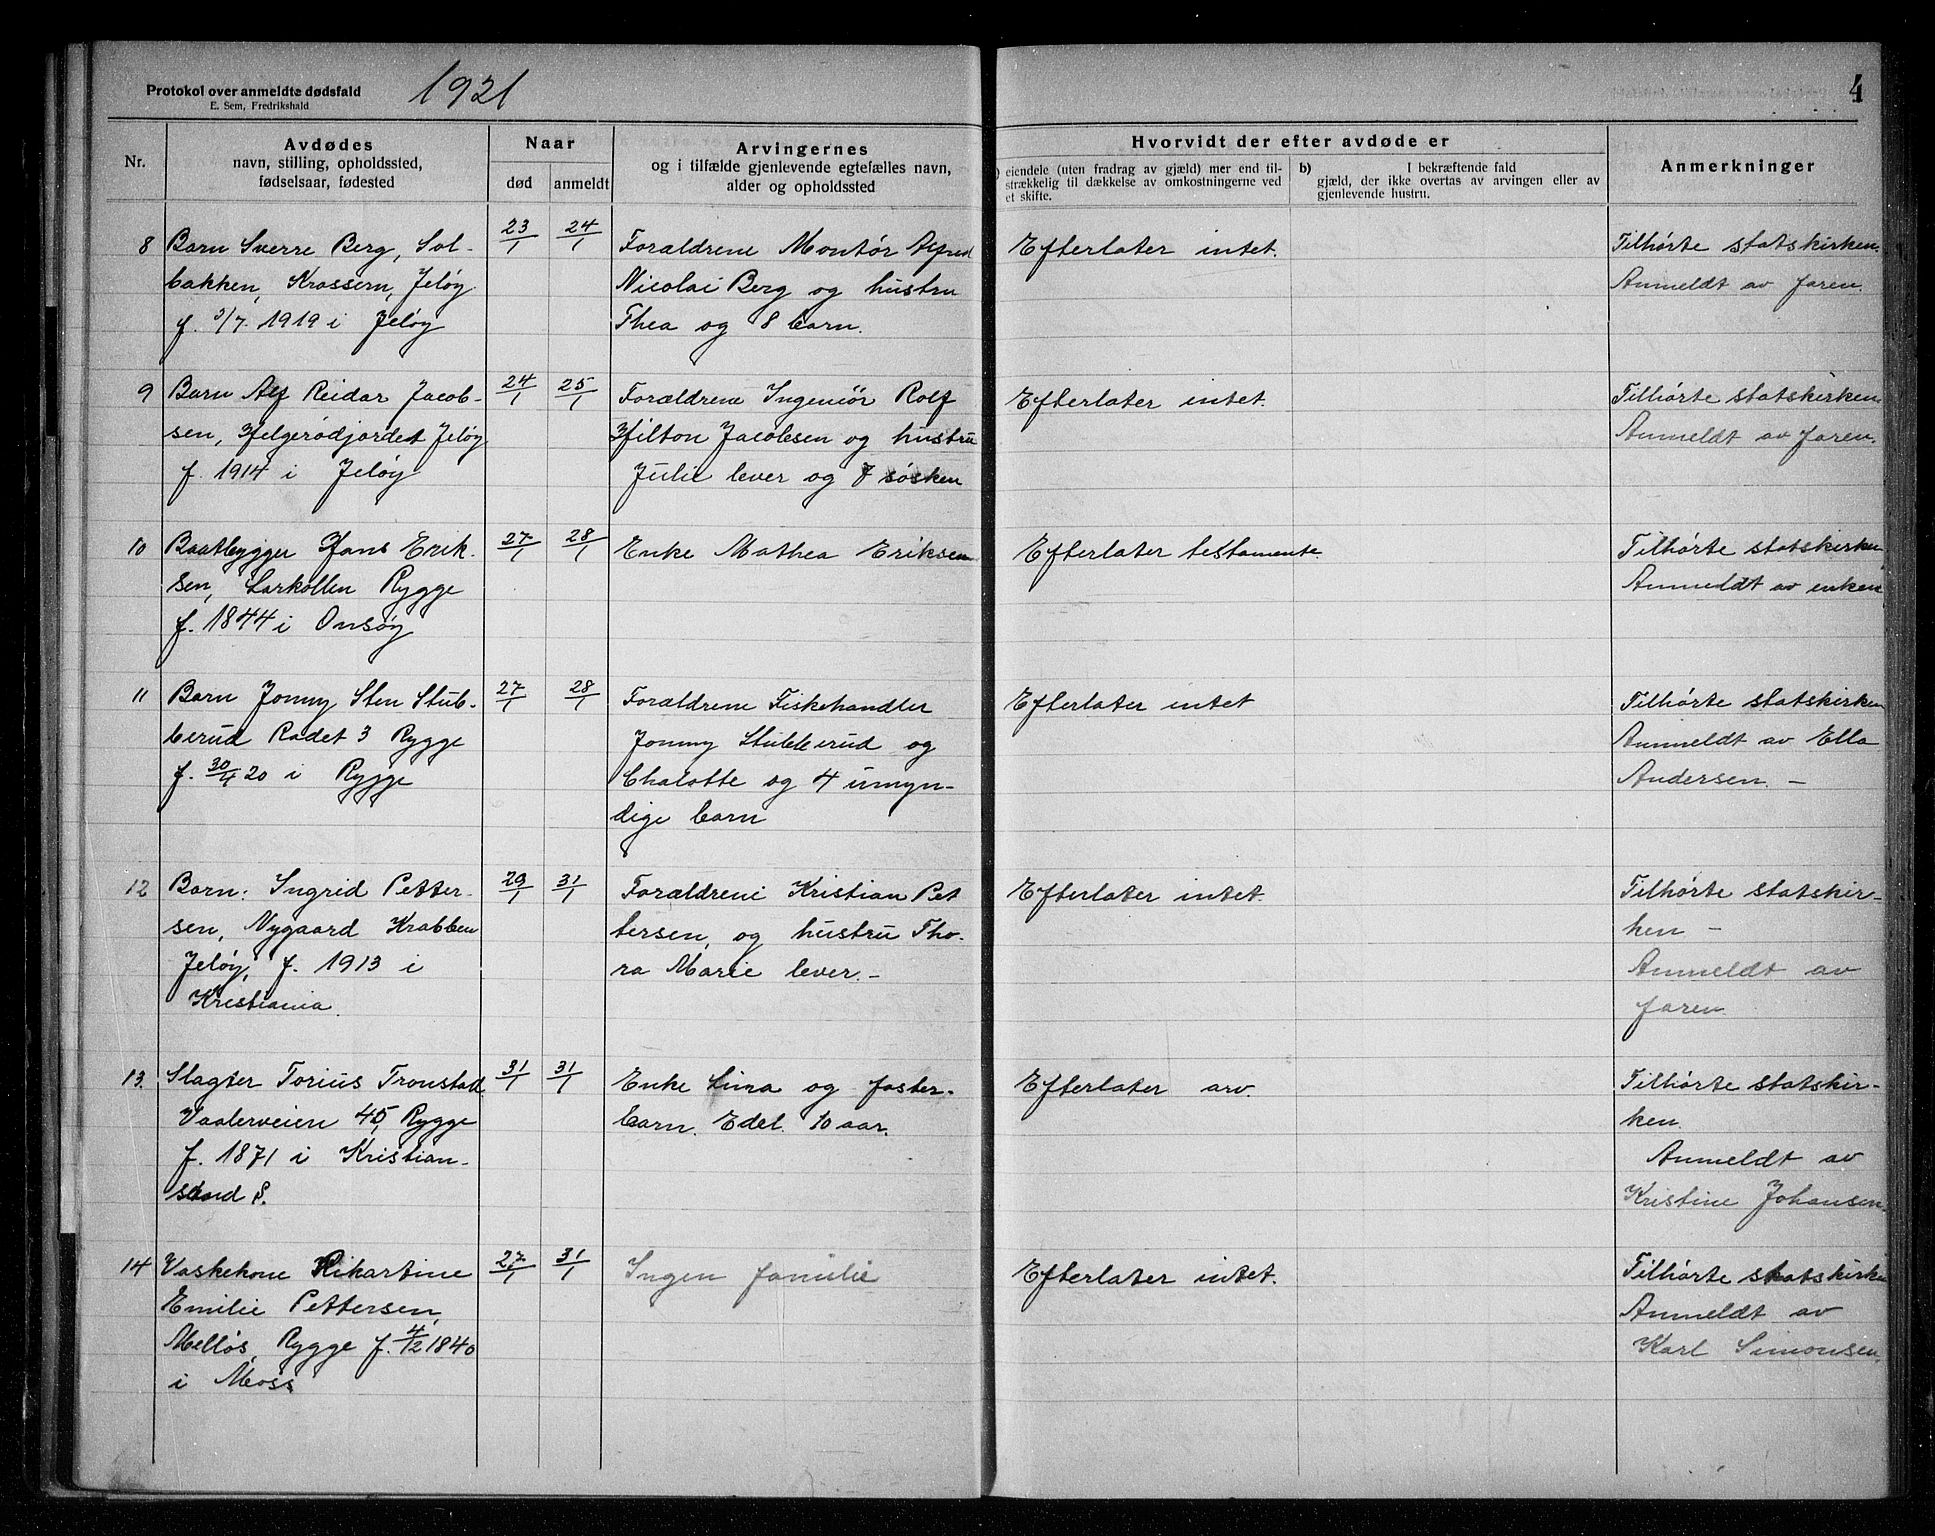 Protokol over anmeldte dødsfald
E. Sem, Fredrikshald
1921
4
Nr.
Avdødes
navn, stilling, opholdssted,
fødselsaar, fødested
Naar
død
anmeldt
Arvingernes
og i tilfælde gjenlevende egtefælles navn,
alder og opholdssted
Hvorvidt der efter avdøde er
) eiendele (uten fradrag av gjæld) mer end til-
strækkelig til dækkelse av omkostningerne ved
et skifte.
b) I bekræftende fald
gjæld, der ikke overtas av arvingen eller av
gjenlevende hustru.
Anmerkninger
8
Barn Sverre Berg, Sol-
bakken, Krossern, Jeløy
f. 3/7. 1919 i Jeløy
23/1
24/1
Forældrene Montør Alfred
Nicolai Berg og hustru
Thea og 8 barn.
Efterlater intet.
Tilhørte statskirken.
Anmeldt av faren.
9
Barn Alf Reidar Jacob-
sen, Helgerødjordet Jeløy
f. 1914 i Jeløy
24/1
25/1
Forældrene Ingeniör Rolf
Hilton Jacobsen og hustru
Julie lever og 7 søsken
Efterlater intet.
Tilhørte statskirken
Anmeldt av faren.
10
Baatbygger Hans Erik-
sen, Larkollen Rygge
f. 1844 i Onsøy
27/1
28/1
Enke Mathea Eriksen
Efterlater testamente
Tilhørte statskirken
Anmeldt av enken
11
Barn Jonny Sten Stub-
berud Radet 3 Rygge
f. 30/4 20 i Rygge
27/1
28/1
Forældrene Fiskehandler
Jonny Stubberud og
Chalotte og 4 umyn-
dige barn
Efterlater intet
Tilhørte statskirken
Anmeldt av Ella
Andersen. -
12
Barn: Ingrid Petter-
sen, Nygaard Krabben
Jeløy, f. 1913 i
Kristiania.
29/1
31/1
Forældrene Kristian Pet
tersen, og hustru Tho-
ra Marie lever. -
Efterlater intet.
Tilhørte statskir-
ken -
Anmeldt av
faren.
13.
Slagter Torius Tronstad
Vaalerveien 45, Rygge
f. 1871 i Kristian-
sand S.
31/1
31/1
Enke Lina og foster-
barn. Edel. 10 aar.
Efterlater arv.
Tilhørte statskir-
ken.
Anmeldt av
Kristine Johansen.
14
Vaskekone Rikartine
Emilie Pettersen,
Melløs, Rygge f. 4/2 1840
i Moss
27/1
31/1
Ingen familie
Efterlater intet.
Tilhørte statskirken
Anmeldt av
Karl Simonsen.